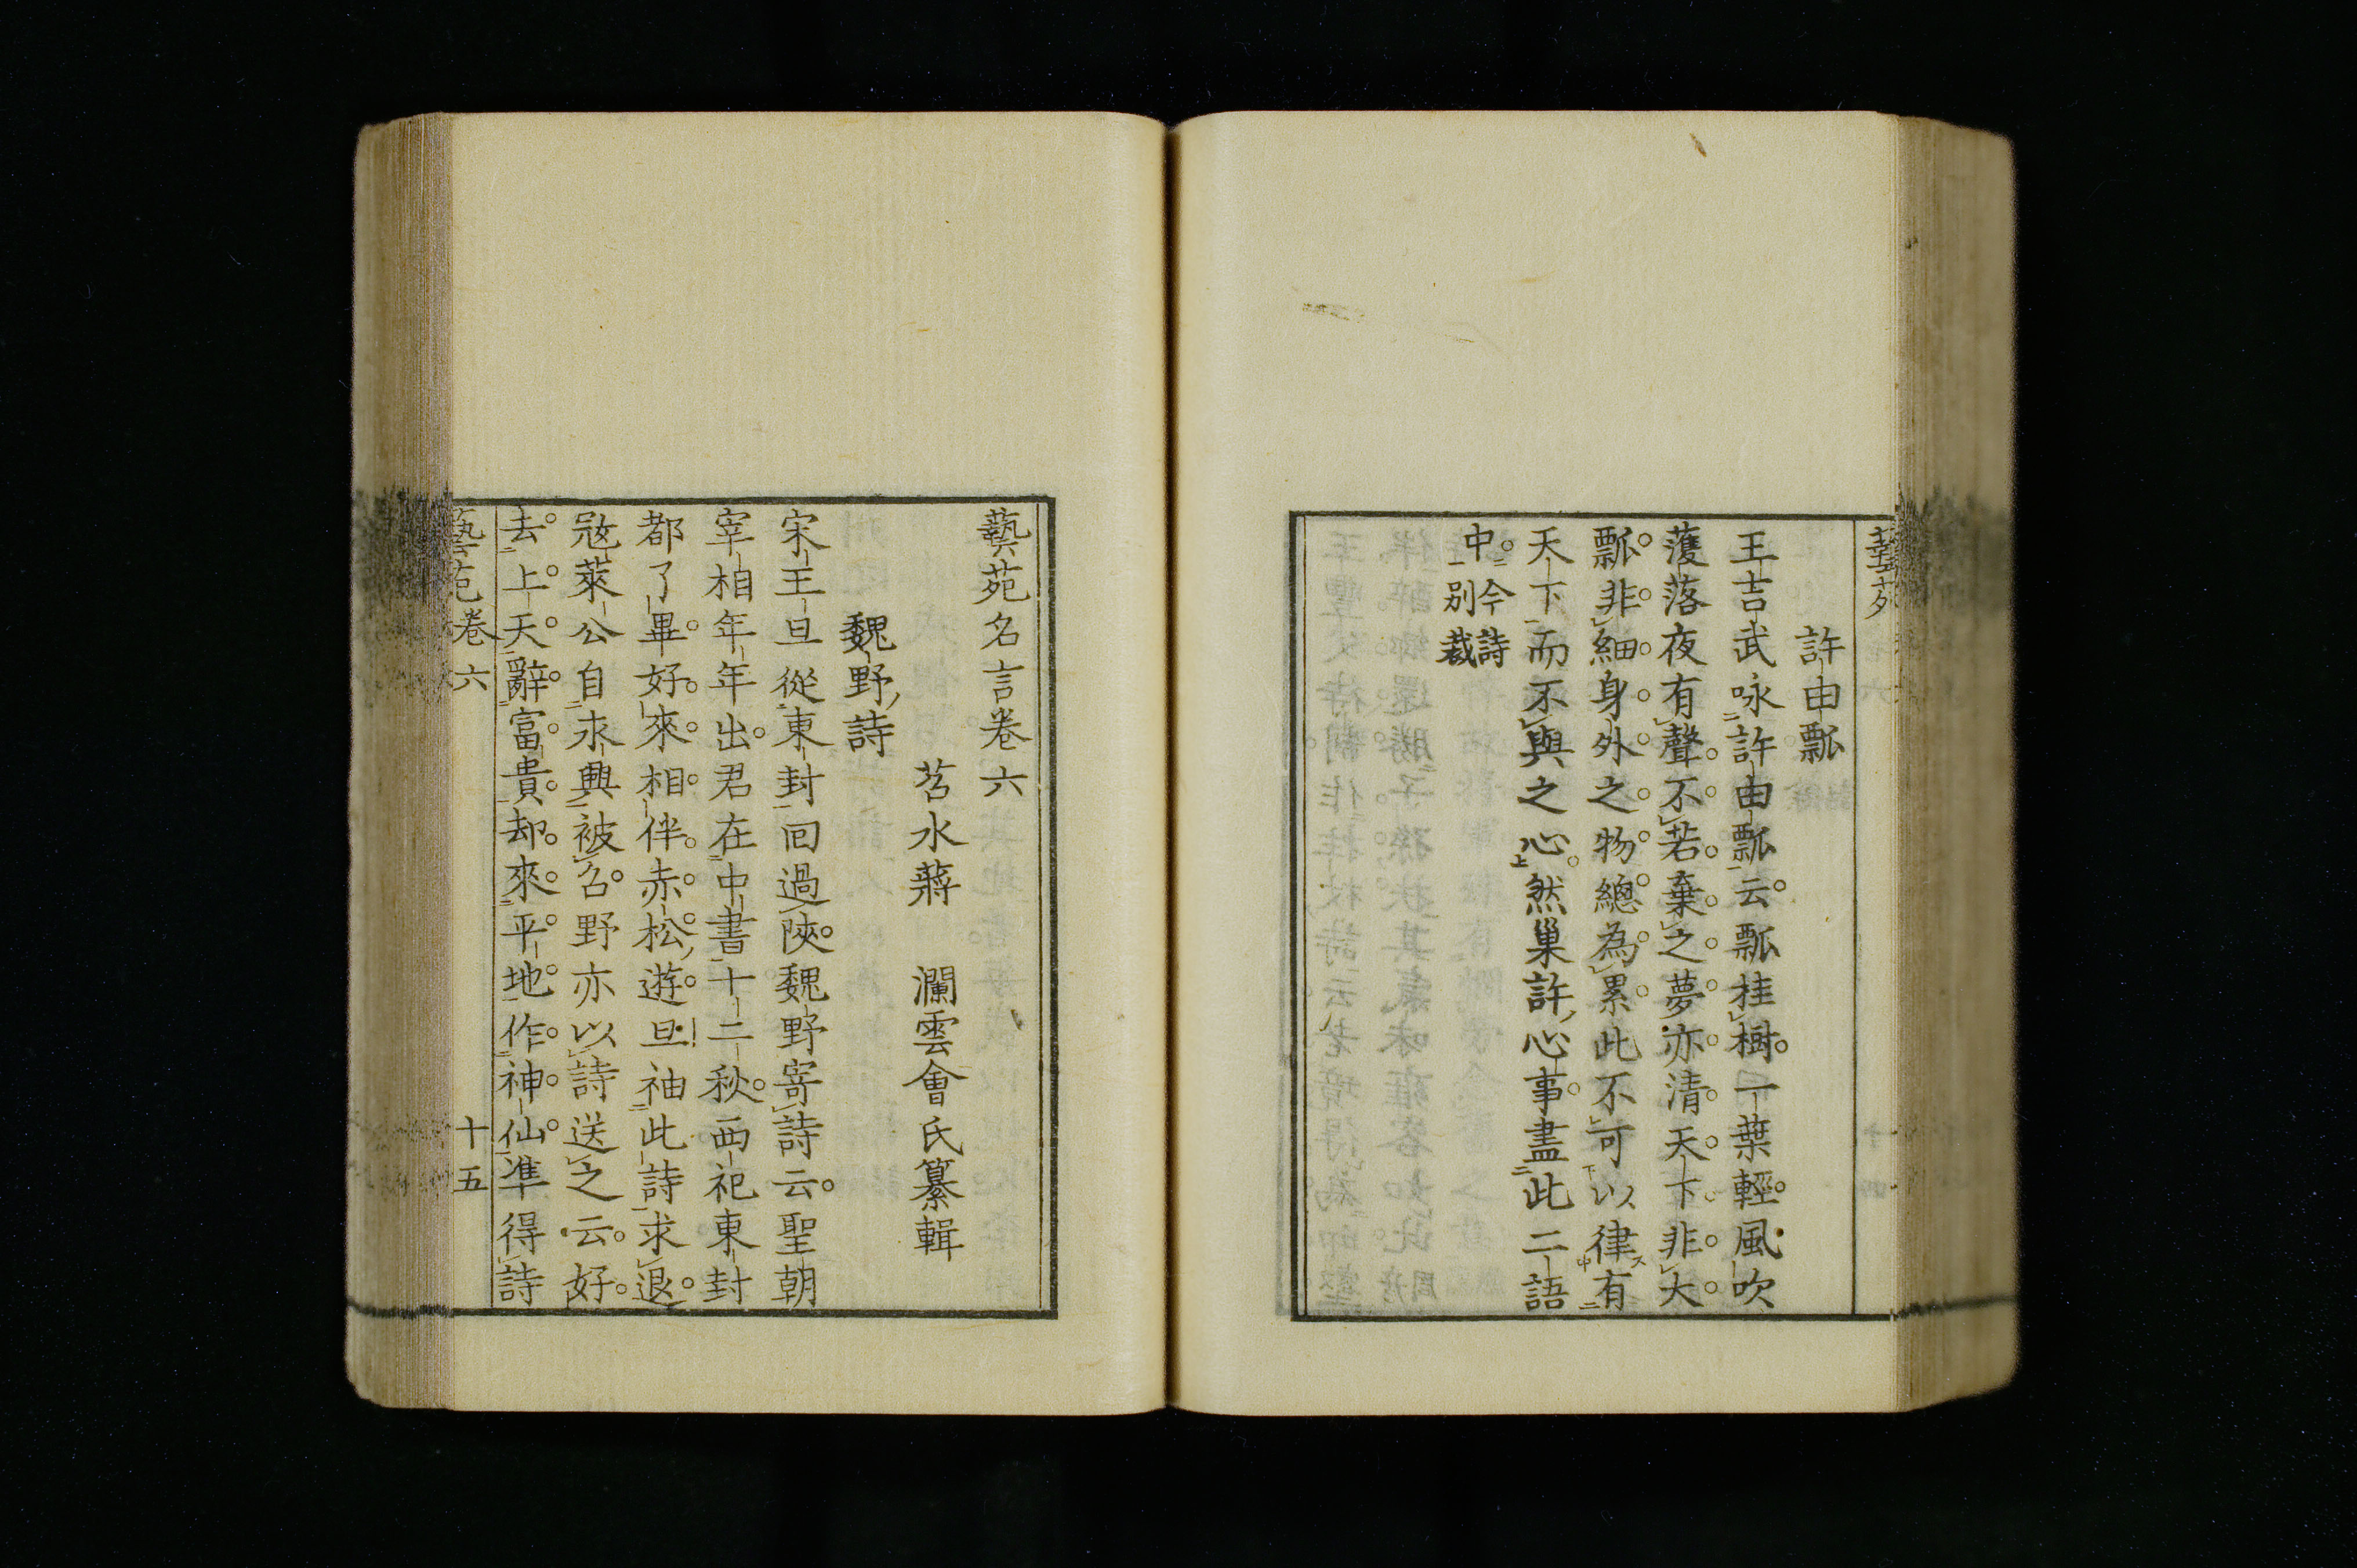 許由瓢
王吉武咏許由瓢云瓢桂樹一葉輕風吹
蒦落夜有聲不若棄之夢亦清天下非大
瓢非細身外之物總為累此不可以律有
天下而不與之心然巢許心事盡此二語
中今詩
別裁
藝苑名言卷六
苕水蔣　瀾雲會氏纂輯
魏野詩
宋王旦從東封回過陝魏野寄詩云聖朝
宰相年年出君在中書十二秋西祀東封
都了畢好來相伴赤松遊旦袖此詩求退
寇萊公自永興被召野亦以詩送之云好
去上天辭富貴却來平地作神仙準得詩
藝苑卷六　十五